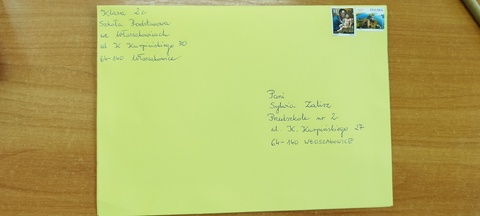 Klasa 2c
Szkoła Podstawowa
we Włoszakowicach
ul. K. Kurpińskiego 30
64-140 Włoszakowice
Pani
Sylwia Zalisz
Przedszkole nr 2
ul. K. Kurpińskiego 27
64-140 WŁOSZAKOWICE